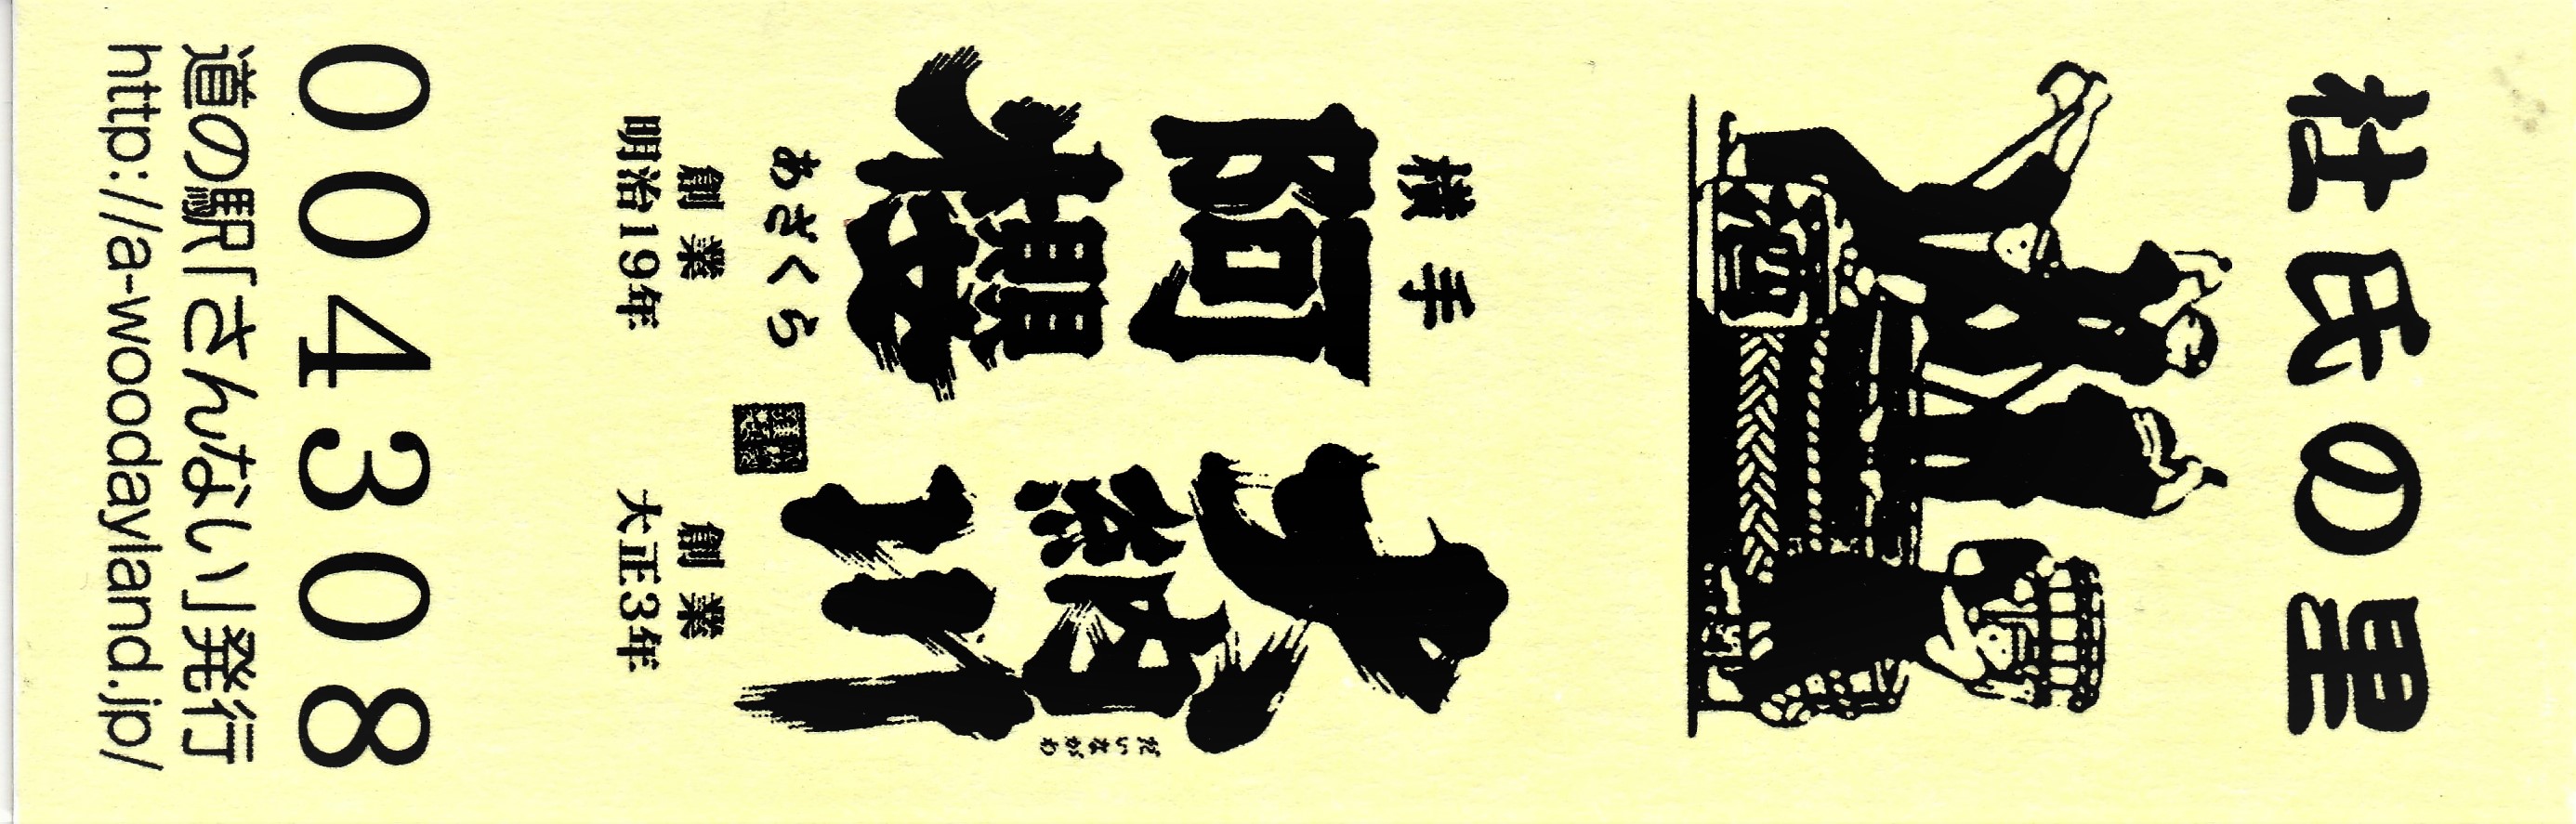 杜氏の里
酒
横手
阿櫻
あざくら
創業
明治19年
大納川
だいながわ
創業
大正3年
004308
道の駅「さんない」発行
http://a-woodayland.jp/